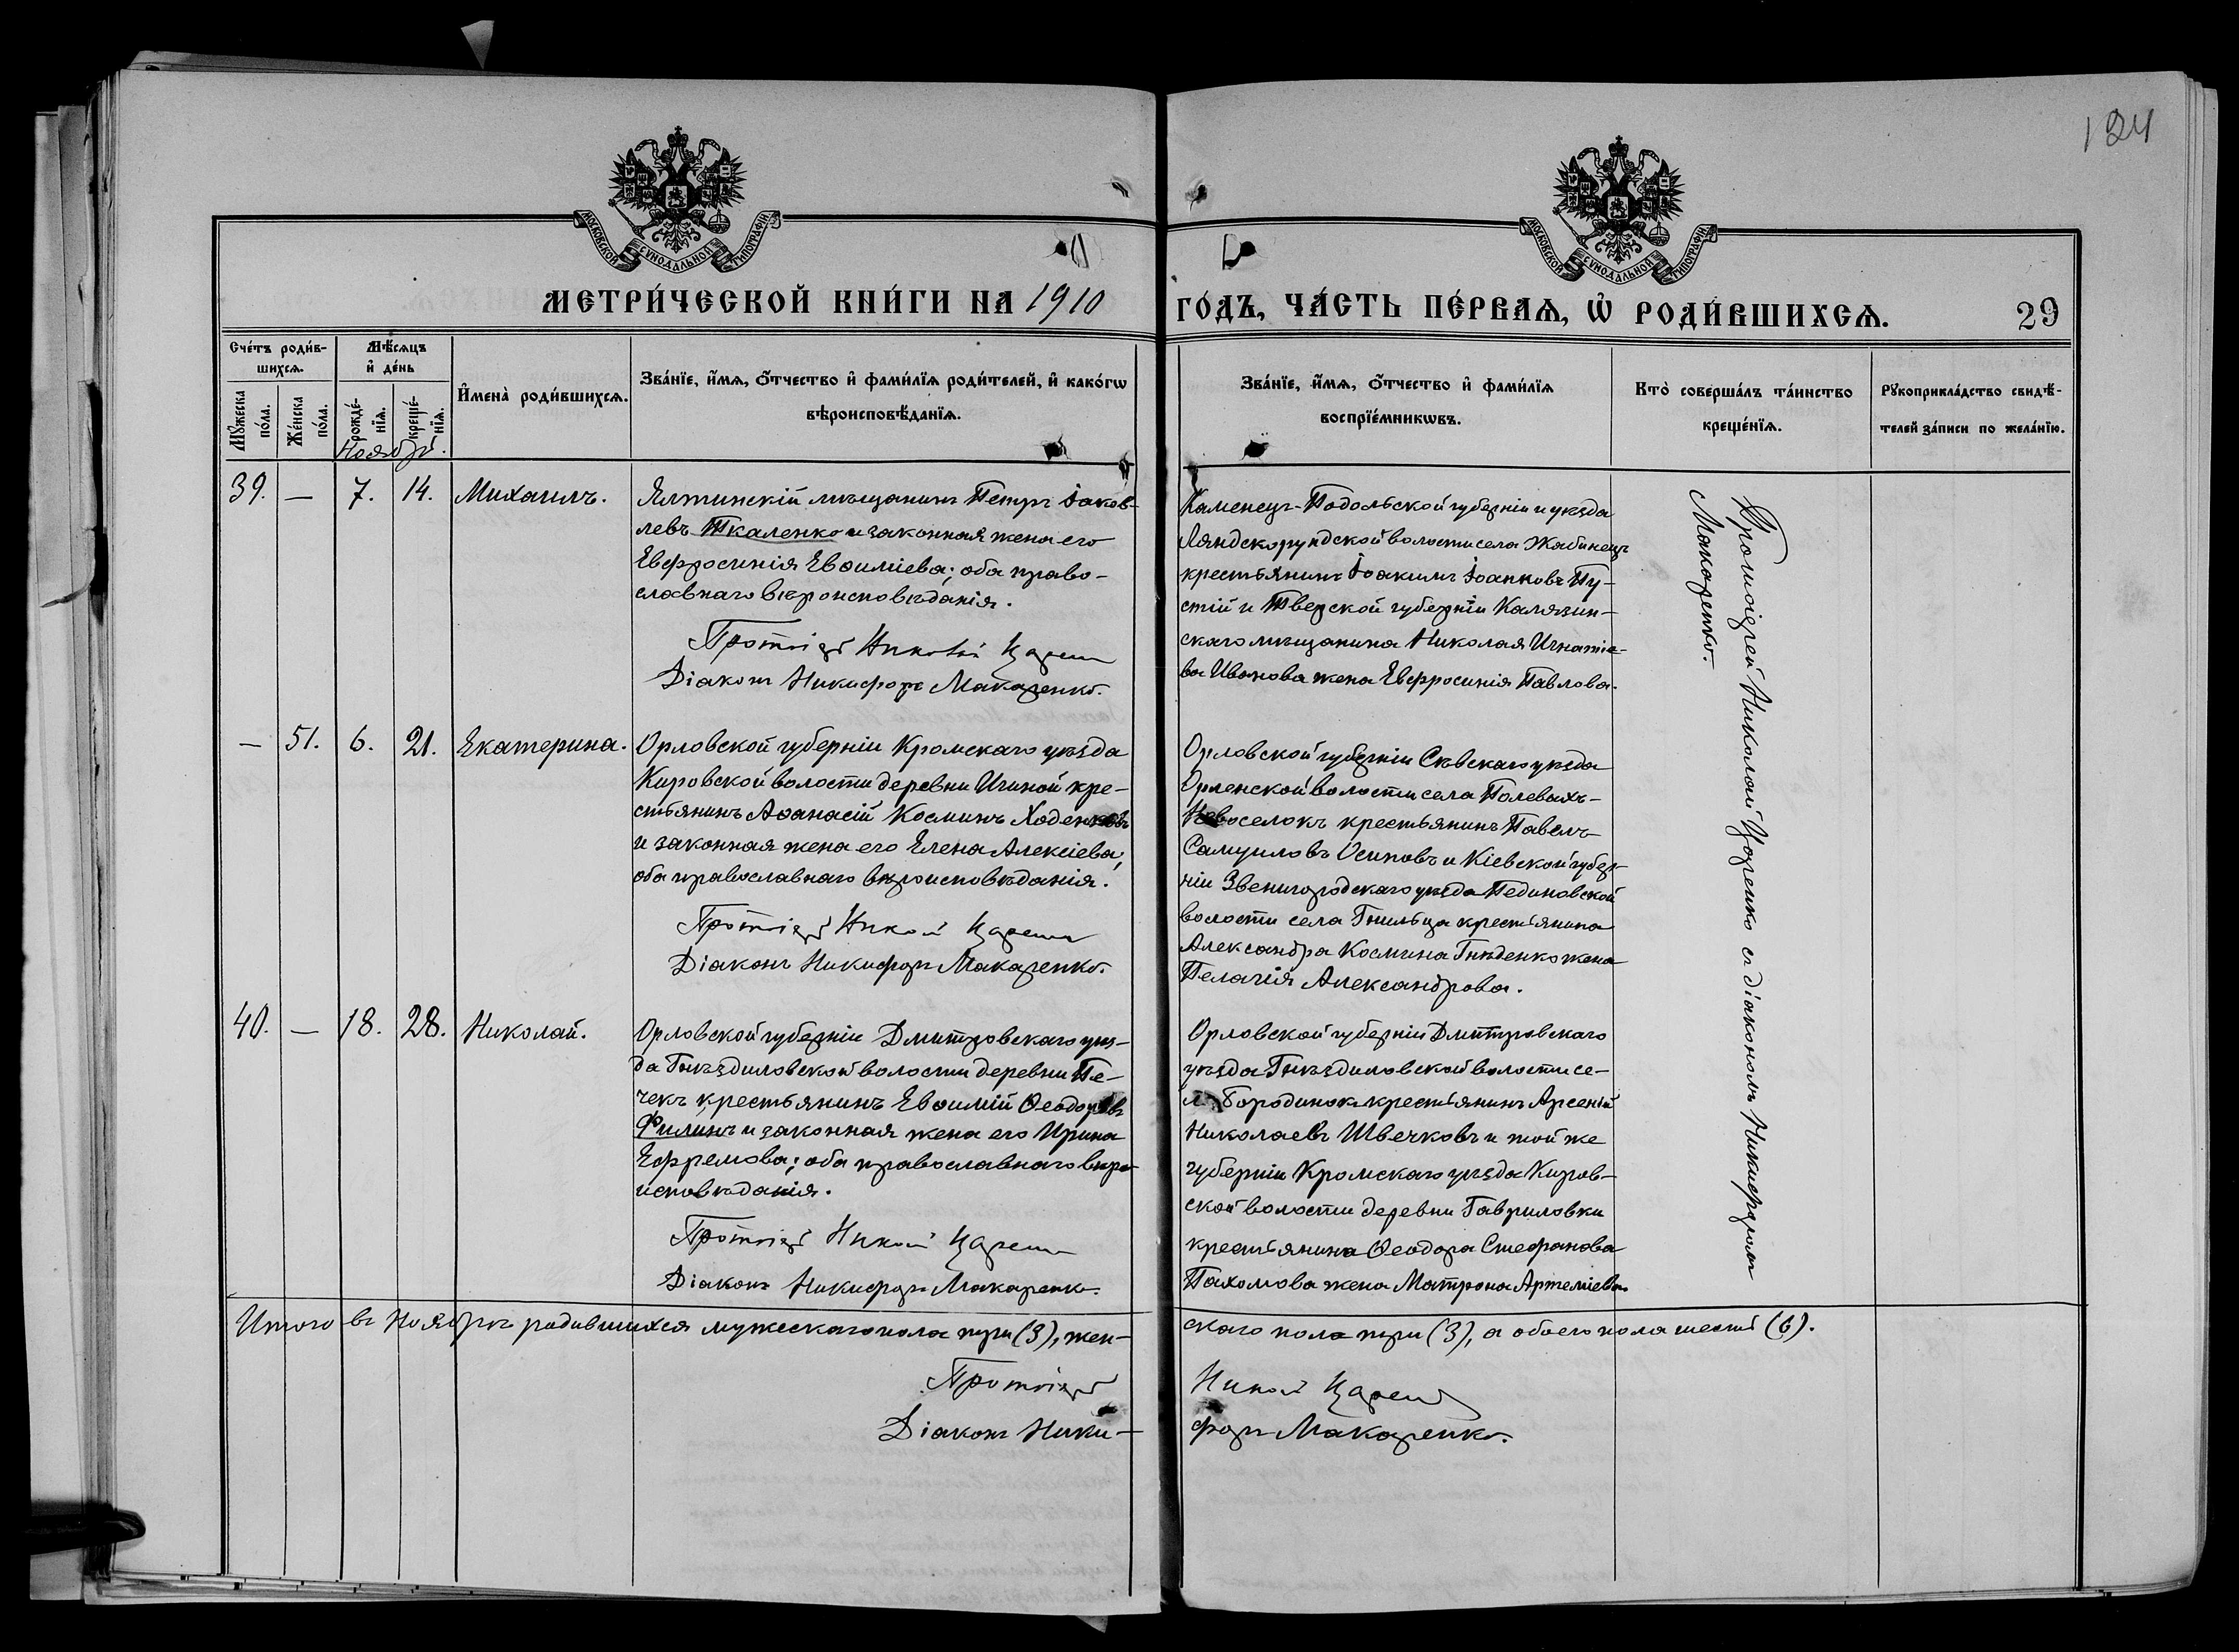 124
МОСКОВСКОЙ СУНОДАЛЬНОЙ ТИПОГРАФІИ
МОСКОВСКОЙ СУНОДАЛЬНОЙ ТИПОГРАФІИ
МЕТРИ́ЧЕСКОЙ КНИ́ГИ НА 1910
ГО́ДЪ, ЧА́СТЬ ПЕ́РВАѦ, Ѡ҆ РОДИ́ВШИХСѦ.
29
Сче́тъ роди́в-
шихсѧ.
Мꙋжеска
по́ла.
Же́нска
по́ла.
Мѣ́сѧцъ
и҆ де́нь
рожде́-
нїѧ.
креще́-
нїѧ.
И҆мена̀ роди́вшихсѧ.
Зва́нїе, и҆́мѧ, ѻ҆́тчество и҆ фами́лїѧ роди́телей, и҆ како́гѡ
вѣроисповѣ́данїѧ.
Зва́нїе, и҆́мѧ, ѻ҆́тчество и҆ фами́лїѧ
воспрїе́мникѡвъ.
Кто̀ соверша́лъ та́инство
креще́нїѧ.
Рꙋкоприкла́дство свидѣ́-
телей за́писи по жела́нїю.
Ноябрь.
39.
—
7.
14.
Михаилъ.
Ялтинскій мѣщанинъ Петръ Іаков-
левъ Ткаленко и законная жена его
Евфросинія Евѳиміева; оба право-
славнаго вѣроисповѣданія.
Протоіерей Николай Царенко
Діаконъ Никифоръ Макаренко.
Каменецъ-Подольской губерніи и уѣзда
Ляндскорунской волости села Жабинецъ
крестьянинъ Іоакимъ Іоанновъ Пу-
стій и Тверской губерніи Калязин-
скаго мѣщанина Николая Игнатіе-
ва Иванова жена Евфросинія Павлова.
Протоіерей Николай Царенко съ діакономъ Никифоромъ
Макаренко.
—
51.
6.
21.
Екатерина.
Орловской губерніи Кромскаго уѣзда
Кировской волости деревни Игиной кре-
стьянинъ Аѳанасій Косминъ Ходенковъ
и законная жена его Елена Алексіева,
оба православнаго вѣроисповѣданія.
Протоіерей Николай Царенко
Діаконъ Никифоръ Макаренко.
Орловской губерніи Сѣвскаго уѣзда
Орленской волости села Полевахъ-
Новоселокъ крестьянинъ Павелъ
Самуиловъ Осиповъ и Кіевской губер-
ніи Звенигородскаго уѣзда Пединовской
волости села Гнильца крестьянина
Александра Космина Гнѣденко жена
Пелагія Александрова.
40.
—
18.
28.
Николай.
Орловской губерніи Дмитровскаго уѣз-
да Гнѣздиловской волости деревни Пе-
чекъ крестьянинъ Евѳимій Ѳеодоровъ
Филинъ и законная жена его Ирина
Ефремова; оба православнаго вѣро-
исповѣданія.
Протоіерей Николай Царенко
Діаконъ Никифоръ Макаренко.
Орловской губерніи Дмитровскаго
уѣзда Гнѣздиловской волости се-
ла Бородинок крестьянинъ Арсеній
Николаевъ Швечковъ и той же
губерніи Кромскаго уѣзда Киров-
ской волости деревни Гавриловки
крестьянина Ѳеодора Стефанова
Пахомова жена Матрона Артеміева.
Итого въ Ноябрѣ родившихся мужескаго пола три (3), жен-
скаго пола три (3), а обоего пола шесть (6).
Протоіерей Николай Царенко
Діаконъ Ники-
форъ Макаренко.